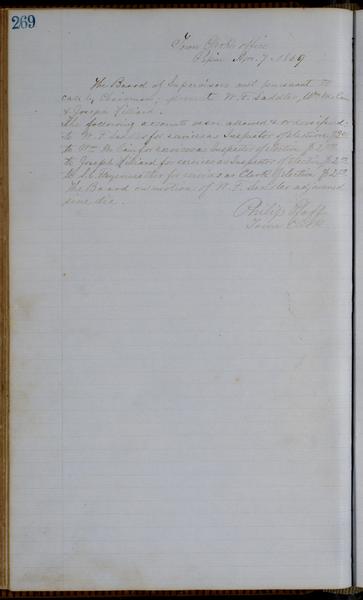 269
Town Clerk's office
Pepin Nov. 7. 1869
The Board of Supervisors met pursuant to
call by Chairman; present W. F. Sadler, Wm McCain
& Joseph
The following accounts were allowed & ordered paid:
to W. F. Sadler for services as Inspector of election
to Wm McCain for services as Inspector of Election $2.00
to Joseph for services as Inspector of Election $2.00
to for services as Clerk of Election $2.00
The Board on motion of W. F. Sadler adjourned
sine die.
Philip Pfaff
Town Clerk